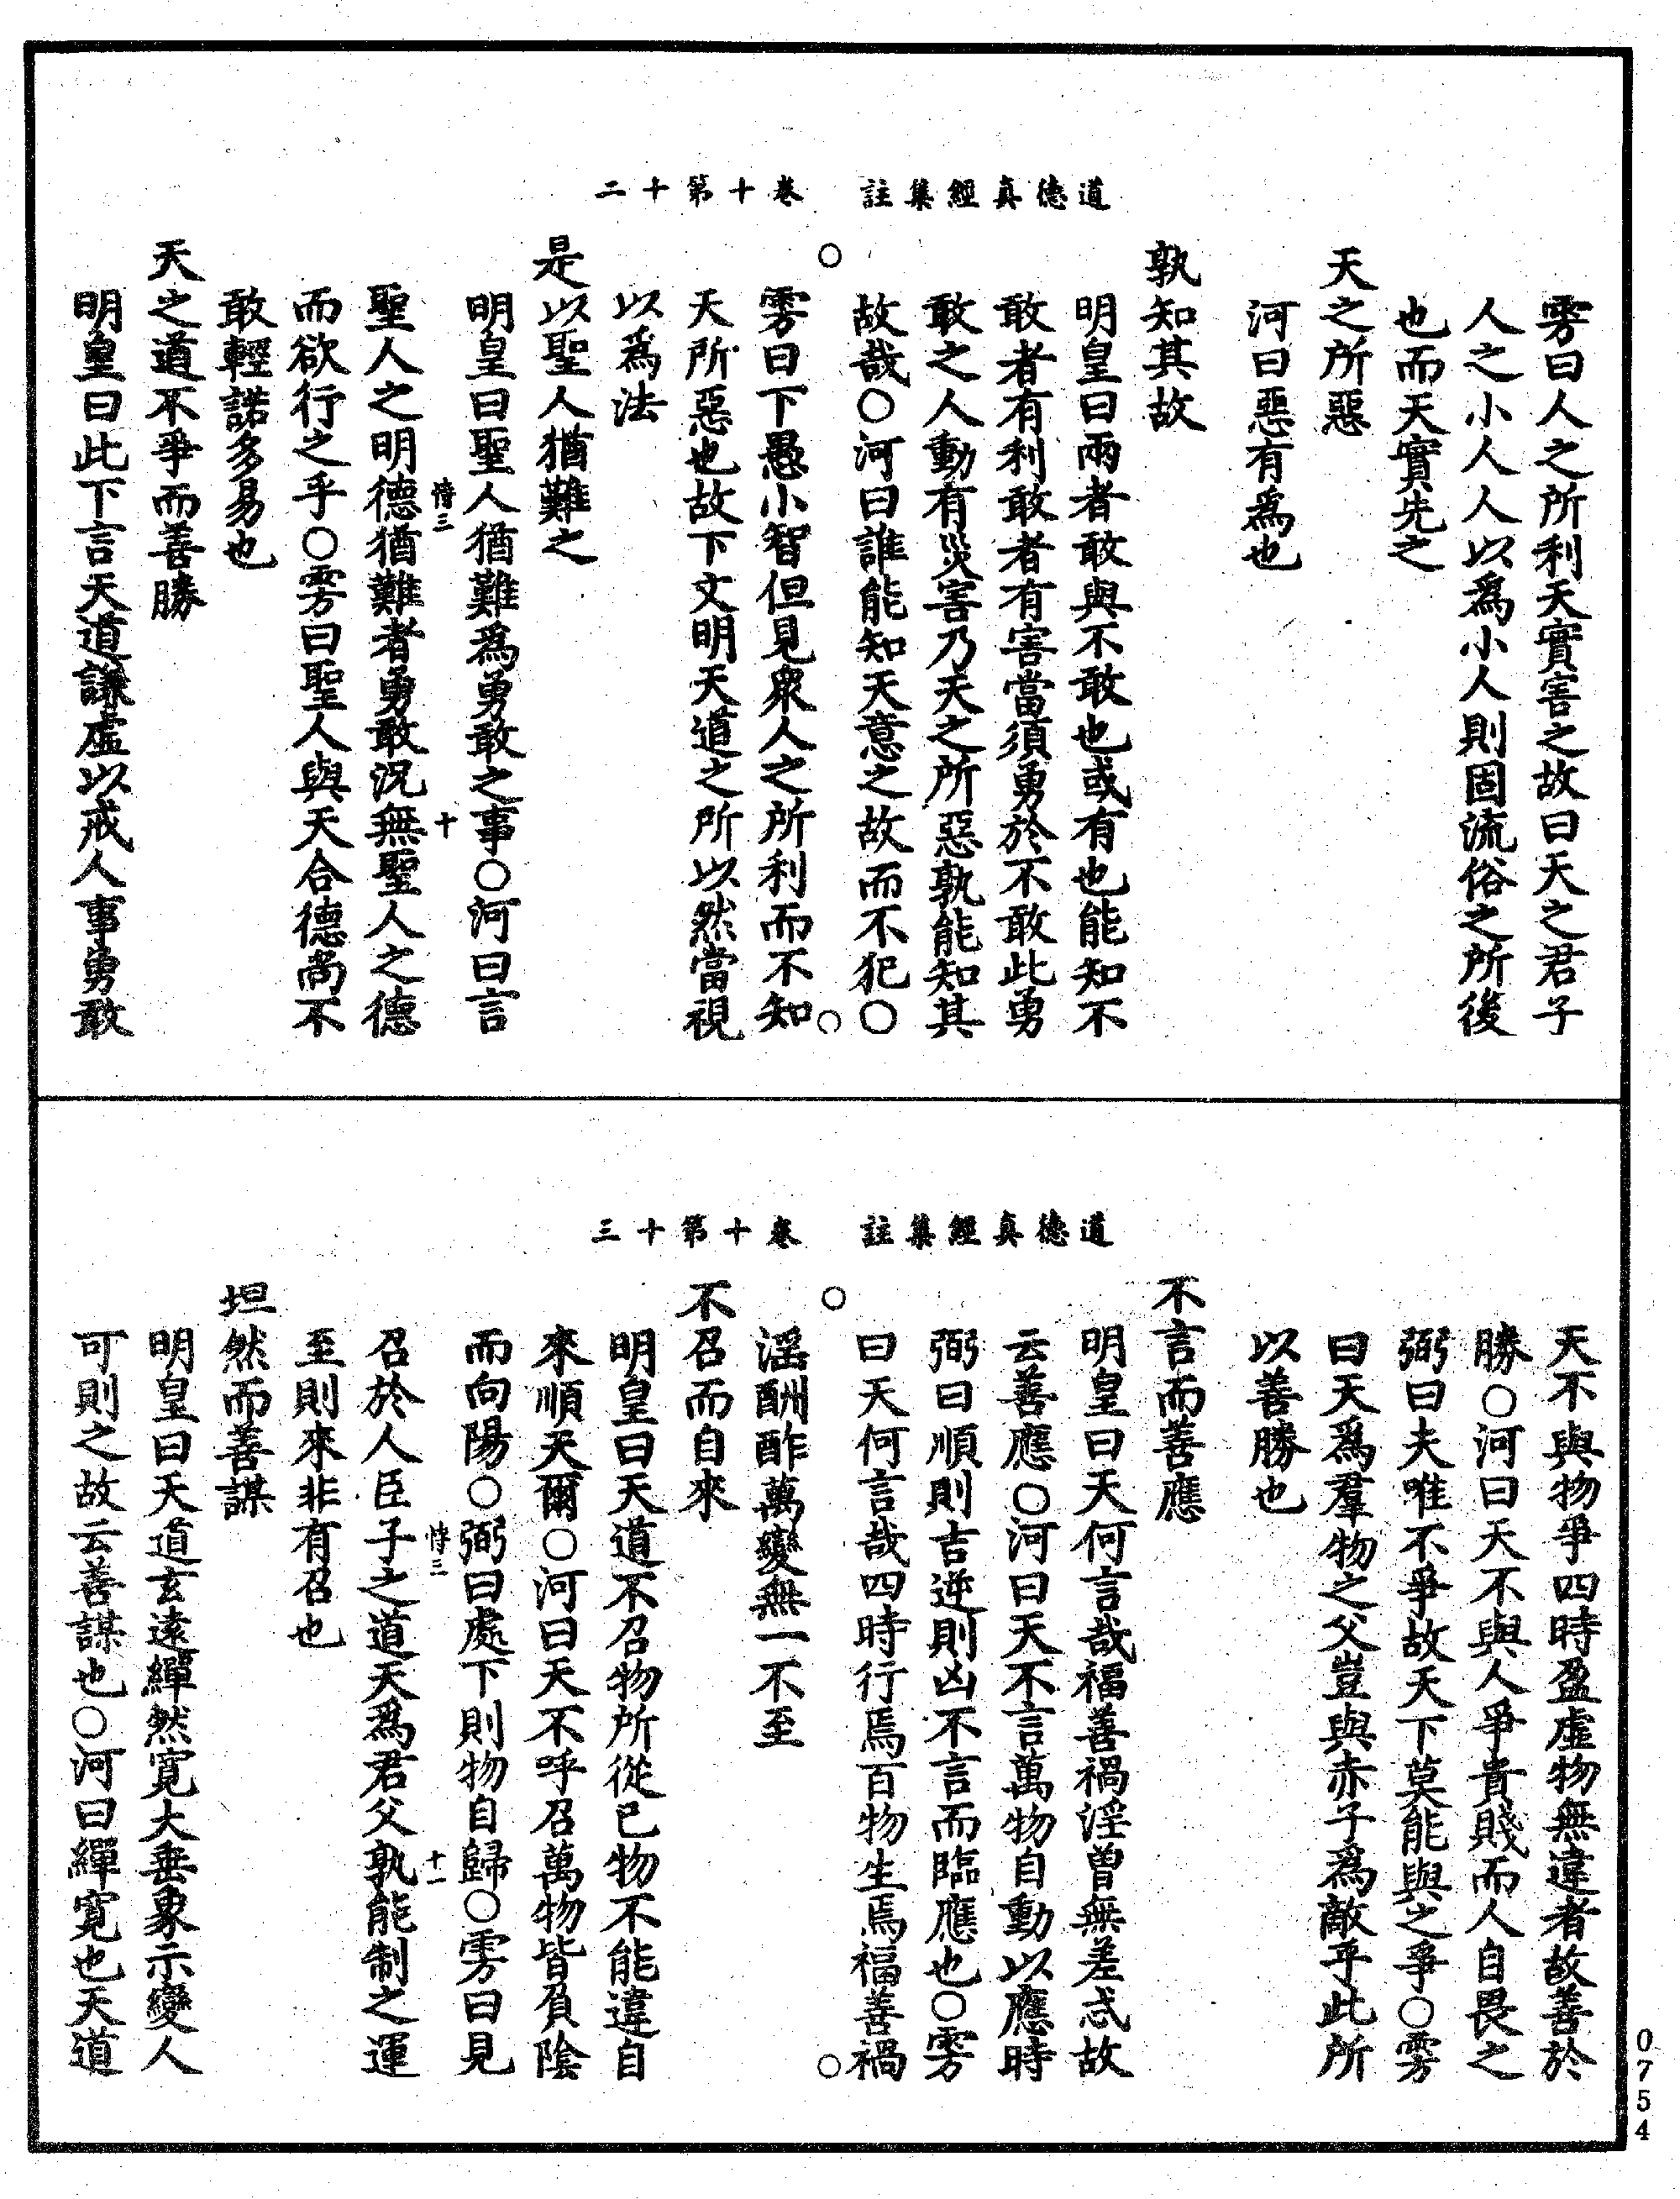 道德真經集註　卷十第十二
雱曰人之所利天實害之故曰天之君子
人之小人人以爲小人則固流俗之所後
也而天實先之
天之所惡
河曰惡有爲也
孰知其故
明皇曰兩者敢與不敢也或有也能知不
敢者有利敢者有害當須勇於不敢此勇
敢之人動有災害乃天之所惡孰能知其
故哉○河曰誰能知天意之故而不犯○
雱曰下愚小智但見衆人之所利而不知
天所惡也故下文明天道之所以然當視
以爲法
是以聖人猶難之
明皇曰聖人猶難爲勇敢之事○河曰言
悖三　十
聖人之明德猶難者勇敢況無聖人之德
而欲行之乎○雱曰聖人與天合德尚不
敢輕諾多易也
天之道不爭而善勝
明皇曰此下言天道謙虛以戒人事勇敢
道德真經集註　卷十第十三
天不與物爭四時盈虛物無違者故善於
勝○河曰天不與人爭貴賤而人自畏之
弼曰夫唯不爭故天下莫能與之爭○雱
曰天爲羣物之父豈與赤子爲敵乎此所
以善勝也
不言而善應
明皇曰天何言哉福善禍淫曾無差忒故
云善應○河曰天不言萬物自動以應時
弼曰順則吉逆則凶不言而臨應也○雱
曰天何言哉四時行焉百物生焉福善禍
淫酬酢萬變無一不至
不召而自來
明皇曰天道不召物所從已物不能違自
來順天爾○河曰天不呼召萬物皆負陰
而向陽○弼曰處下則物自歸○雱曰見
悖三　十一
召於人臣子之道天爲君父孰能制之運
至則來非有召也
坦然而善謀
明皇曰天道玄遠繟然寬大垂象示變人
可則之故云善謀也○河曰繟寬也天道
0754